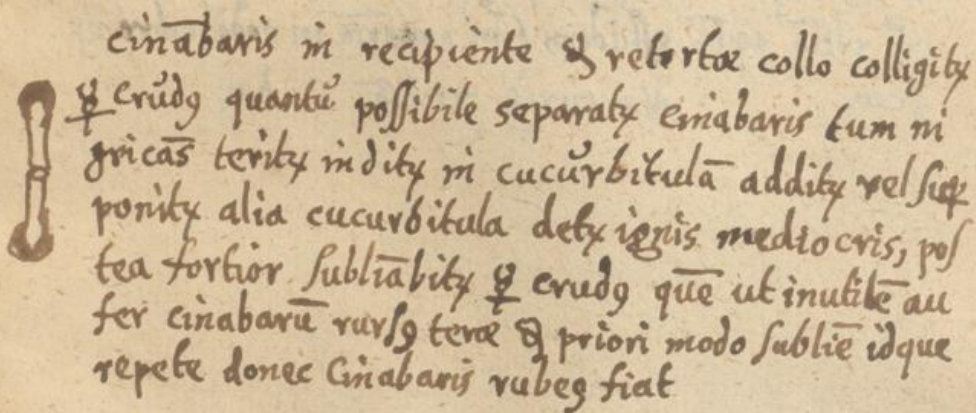 cinābaris in recipiente & retortæ collo colligitꝝ
☿ crŭdꝯ quantŭ possibile separatꝝ cinabaris tum ni
gricās teritꝝ inditꝝ in cucŭrbitulā additꝝ vel suꝑ
ponitꝝ alia cucurbitula detꝝ ignis mediocris, pos
tea fortior subliābitꝝ ☿ crudꝯ quē ut inutilē au
fer cinabarū rursꝯ teræ & priori modo subliē idque
repete donec Cinabaris rubeꝯ fiat